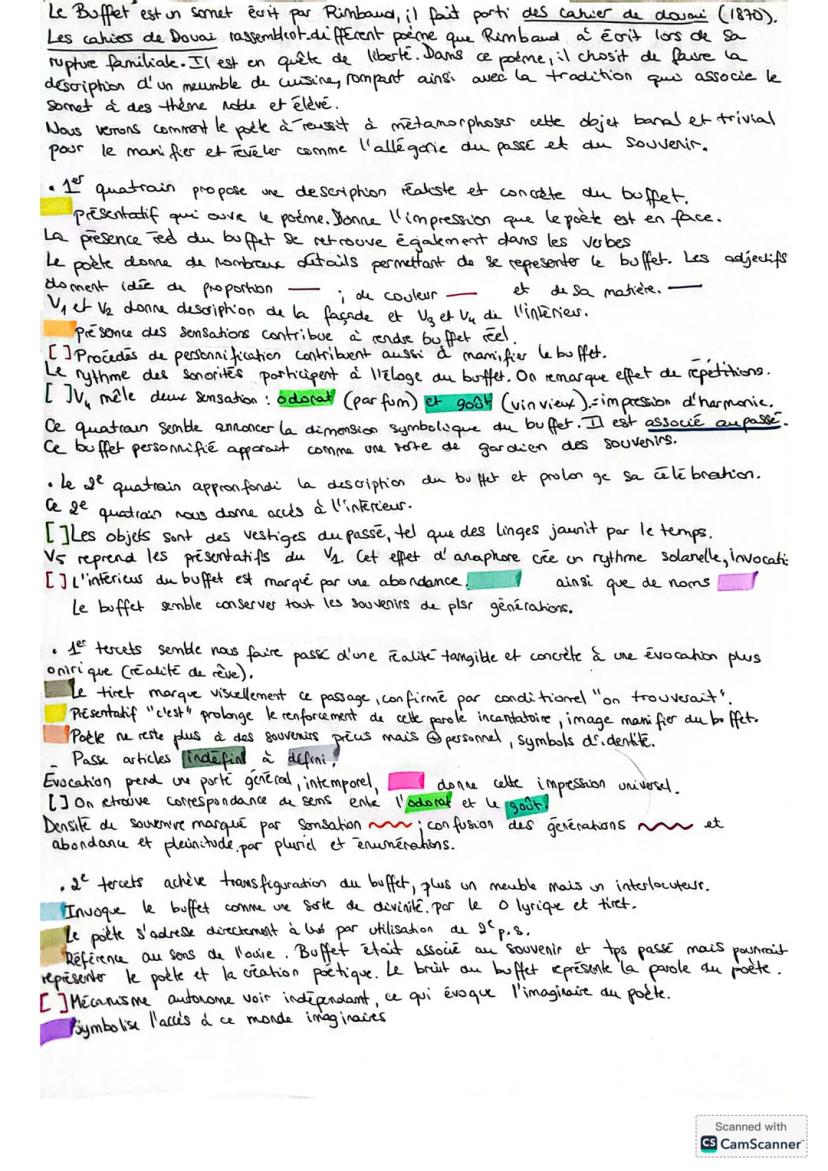 Le Buffet est un sonnet écrit par Rimbaud, il fait parti des cahier de douai (1870).
Les cahiers de Douai rassemblent différent poème que Rimbaud à écrit lors de sa
rupture familiale. Il est en quête de liberté. Dans ce poème, il chosit de faire la
déscription d'un meumble de cuisine, rompant ainsi avec la tradition qui associe le
sonnet à des thème noble et élevé.
Nous verrons comment le poète à réussit à métamorphoser cette objet banal et trivial
pour le manifier et révéler comme l'allégorie du passé et du souvenir.
• 1er quatrain propose une description réaliste et concrète du buffet.
Présentatif qui ouvre le poème. Donne l'impression que le poète est en face.
La présence réel du buffet se retrouve également dans les verbes
Le poète donne de nombreux détails permettant de se repesenter le buffet. Les adjectifs
donnent idée de proportion ; de couleur et de sa matière.
V1 et V2 donne description de la façade et V3 et V4 de l'intérieur.
Présence des sensations contribue à rendre buffet réel.
[ ] Procédés de personnification contribuent aussi à manifier le buffet.
Le rythme des sonorités participent à l'éloge du buffet. On remarque effet de répétitions.
[ ] V4 mêle deux sensation : odorat (parfum) et goût (vin vieux).= impression d'harmonie.
Ce quatrain semble annoncer la dimension symbolique du buffet. Il est associé au passé.
Ce buffet personnifié apparait comme une sorte de gardien des souvenirs.
• Le 2e quatrain appronfondi la description du buffet et prolonge sa célébration.
Ce 2e quatrain nous donne accès à l'intérieur.
[ ] Les objets sont des vestiges du passé, tel que des linges jaunit par le temps.
V5 reprend les présentatifs du V1. Cet effet d'anaphore crée un rythme solanelle, invocati
[ ] L'intérieur du buffet est marqué par une abondance. ainsi que de noms
Le buffet semble conserver tout les souvenirs de plsr générations.
• 1er tercets semble nous faire passé d'une réalité tangible et concrète à une évocation plus
onirique (réalité de rêve).
Le tiret marque visuellement ce passage, confirmé par conditionnel "on trouverait".
Présentatif "c'est" prolonge le renforcement de cette parole incantatoire, image manifier du buffet.
Poète ne reste plus à des souvenirs précis mais ⊕ personnel, symbols d'identité.
Passe articles indéfini à défini,
Évocation prend une porté général, intemporel, donne cette impression universel.
[ ] On etrouve correspondance de sens entre l'odorat et le goût.
Densité de souvenire marqué par sensation ; confusion des générations et
abondance et pleinitude par pluriel et énumérations.
• 2e tercets achève transfiguration du buffet, plus un meuble mais un interlocuteur.
Invoque le buffet comme une sorte de divinité par le O lyrique et tiret.
Le poète s'adresse directement à lui par utilisation de 2e p.s.
Référence au sens de l'ouïe. Buffet était associé au souvenir et tps passé mais pourrait
représenter le poète et la création poétique. Le bruit du buffet représente la parole du poète.
[ ] Mécanisme autonome voir indépendant, ce qui évoque l'imaginaire du poète.
Symbolise l'accès à ce monde imaginaires
Scanned with
CS CamScanner